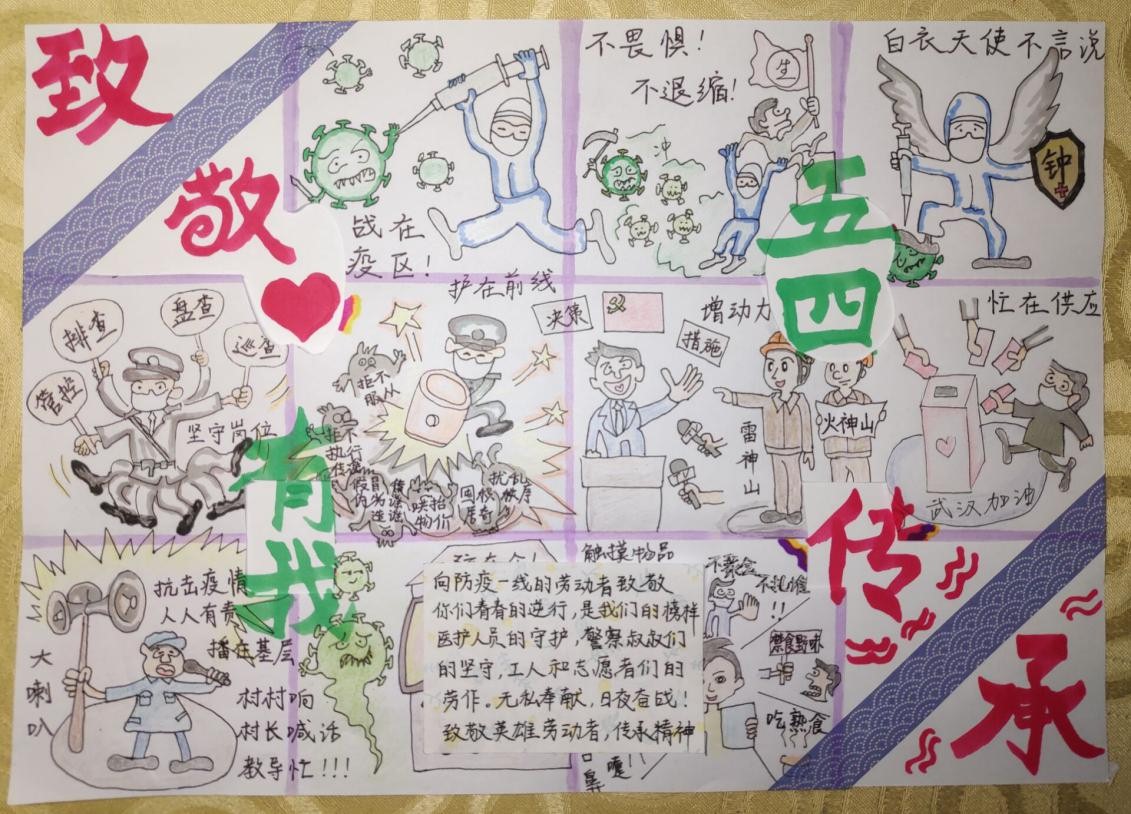 致
敬
战在
疫区！
不畏惧！
不退缩！
生
冲
五
四
白衣天使不言说
钟
排查
盘查
巡查
管控
坚守岗位
护在前线
拒不
服从
哄抬
物价
囤积
居奇
决策
措施
增动力
雷
神
山
火神山
忙在供应
武汉加油
有
我
传
承
大
喇
叭
抗击疫情
人人有责
播在基层
村村响
村长喊话
教导忙！！！
向防疫一线的劳动者致敬
你们青春的逆行，是我们的榜样
医护人员的守护，警察叔叔们
的坚守，工人和志愿者们的
劳作。无私奉献，日夜奋战！
致敬英雄劳动者，传承精神
触摸物品
不聚会
不扎堆
！！
禁食野味
吃熟食